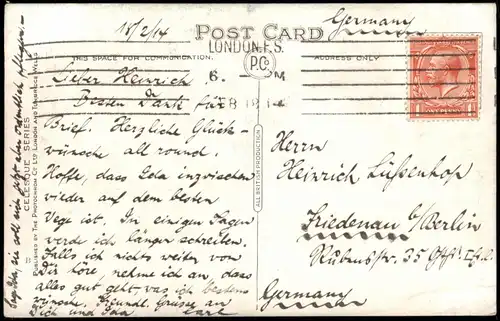 18/2/14
POST CARD
Germany
LONDON. F.S.
THIS SPACE FOR COMMUNICATION.
ADDRESS ONLY
6. - PM
FEB 18 14
Lieber Heinrich
Besten Dank für
Brief. Herzliche Glück-
wünsche all round.
Hoffe, dass Ida inzwischen
wieder auf dem besten
Wege ist. In einigen Tagen
werde ich länger schreiben.
Falls ich nichts weiter von
Dir höre, nehme ich an, dass
alles gut geht, was ich bestens
wünsche. Freundl. Grüsse an
Dich und Ida Carl
Sage Ida, sie soll sich jetzt aber ordentlich pflegen.-
CELESQUE SERIES
PUBLISHED BY THE PHOTOCHROM CO. LTD. LONDON AND TUNBRIDGE WELLS
ALL BRITISH PRODUCTION
P.Co
Herrn
Heinrich Lüssenhop
Friedenau b/Berlin
Rubensstr. 35
Germany